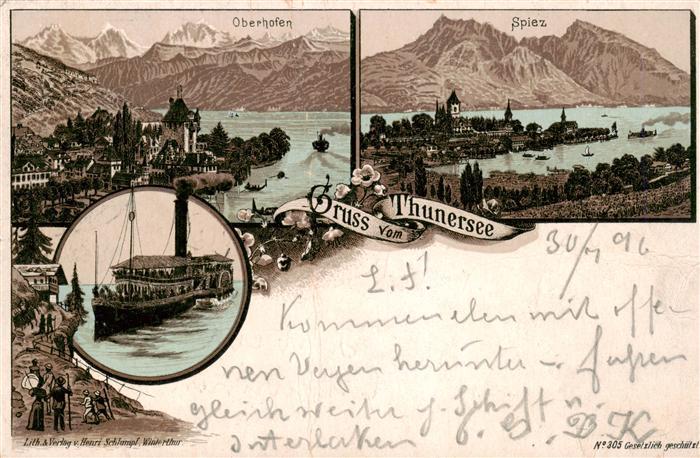 Oberhofen
Spiez
Gruss vom Thunersee
30/7 96
L. F!
Kommen eben mit offe-
nen herunter – fahren
gleich weiter p. Schiff n.
Interlaken
Lith. & Verlag v. Henri Schlumpf, Winterthur.
No 305 Gesetzlich geschützt